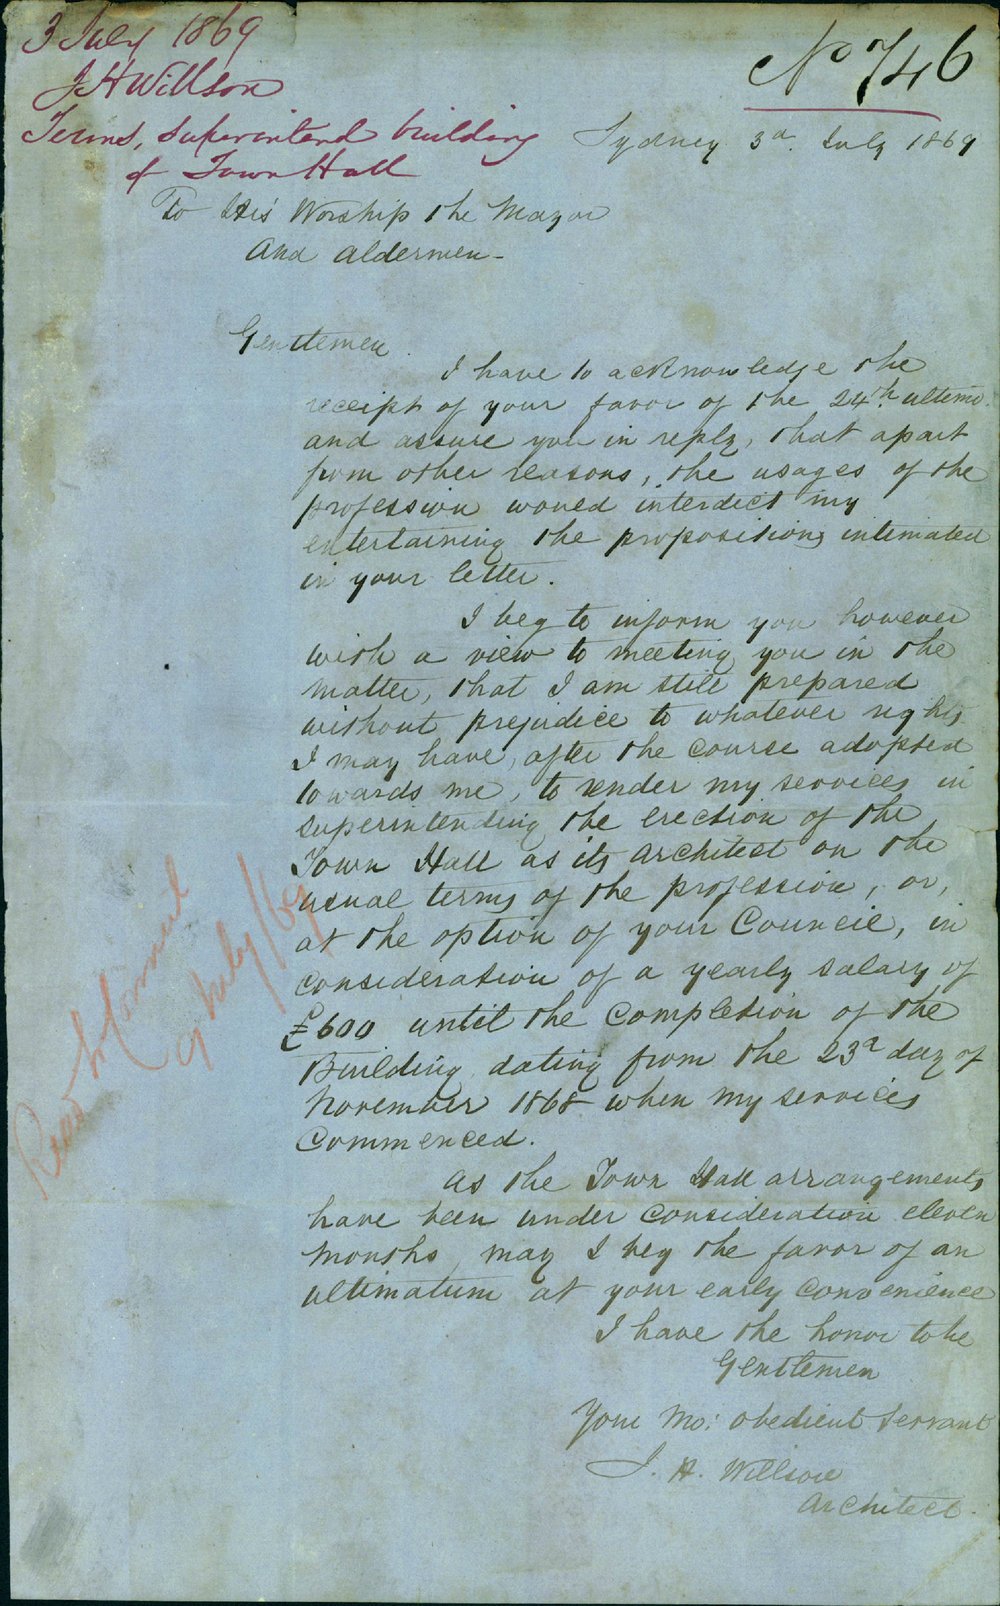 3 July 1869
J H Willson
Terms, Superintend building
of Town Hall
No 746
Sydney 3d. July 1869
To His Worship the Mayor
And Aldermen -
Gentlemen.
I have to acknowledge the
receipt of your favor of the 24th. ultimo.
and assure you in reply, that apart
from other reasons, the usages of the
profession would interdict my
entertaining the propositions intimated
in your letter.
I beg to inform you however
with a view to meeting you in the
matter, that I am still prepared
without prejudice to whatever rights
I may have, after the course adopted
towards me, to render my services in
superintending the erection of the
Town Hall as its Architect on the
usual terms of the profession, or,
at the option of your Council, in
consideration of a yearly salary of
£600 until the completion of the
Building dating from the 23d day of
November 1868 when my services
Commenced.
As the Town Hall arrangements
have been under consideration eleven
months may I beg the favor of an
ultimatum at your early convenience
I have the honor to be
Gentlemen
Your Mo: obedient Servant
J. H. Willson
Architect.
Read in Council
9 July /69